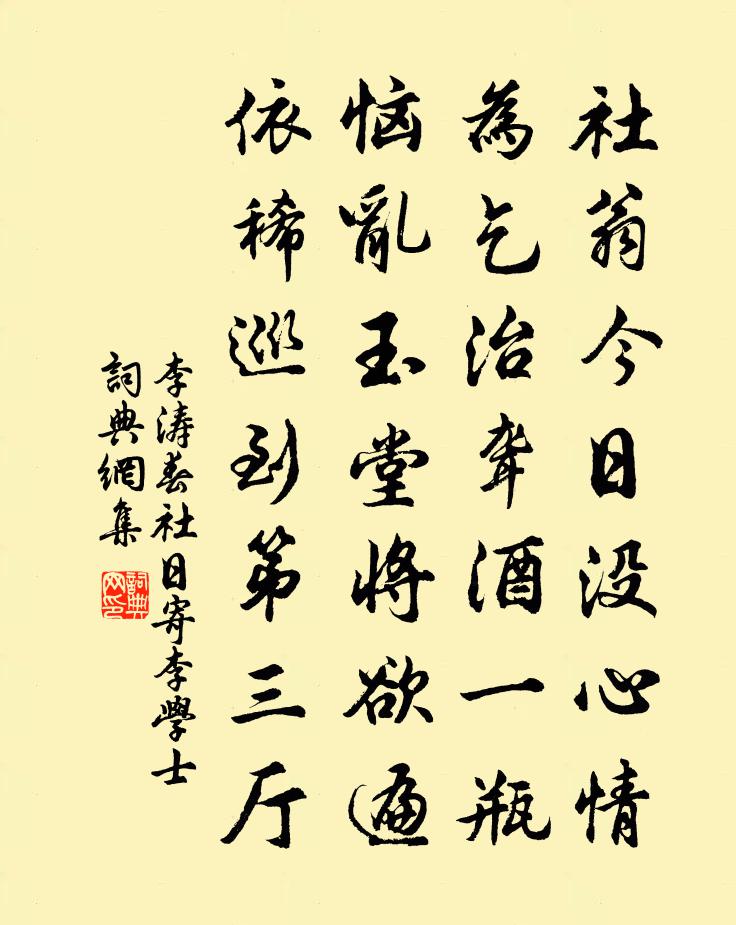 社翁今日没心情
為乞治聋酒一瓶
恼亂玉堂将欲遍
依稀巡到第三厅
李涛春社日寄李學士
詞典網集
詞典
网印